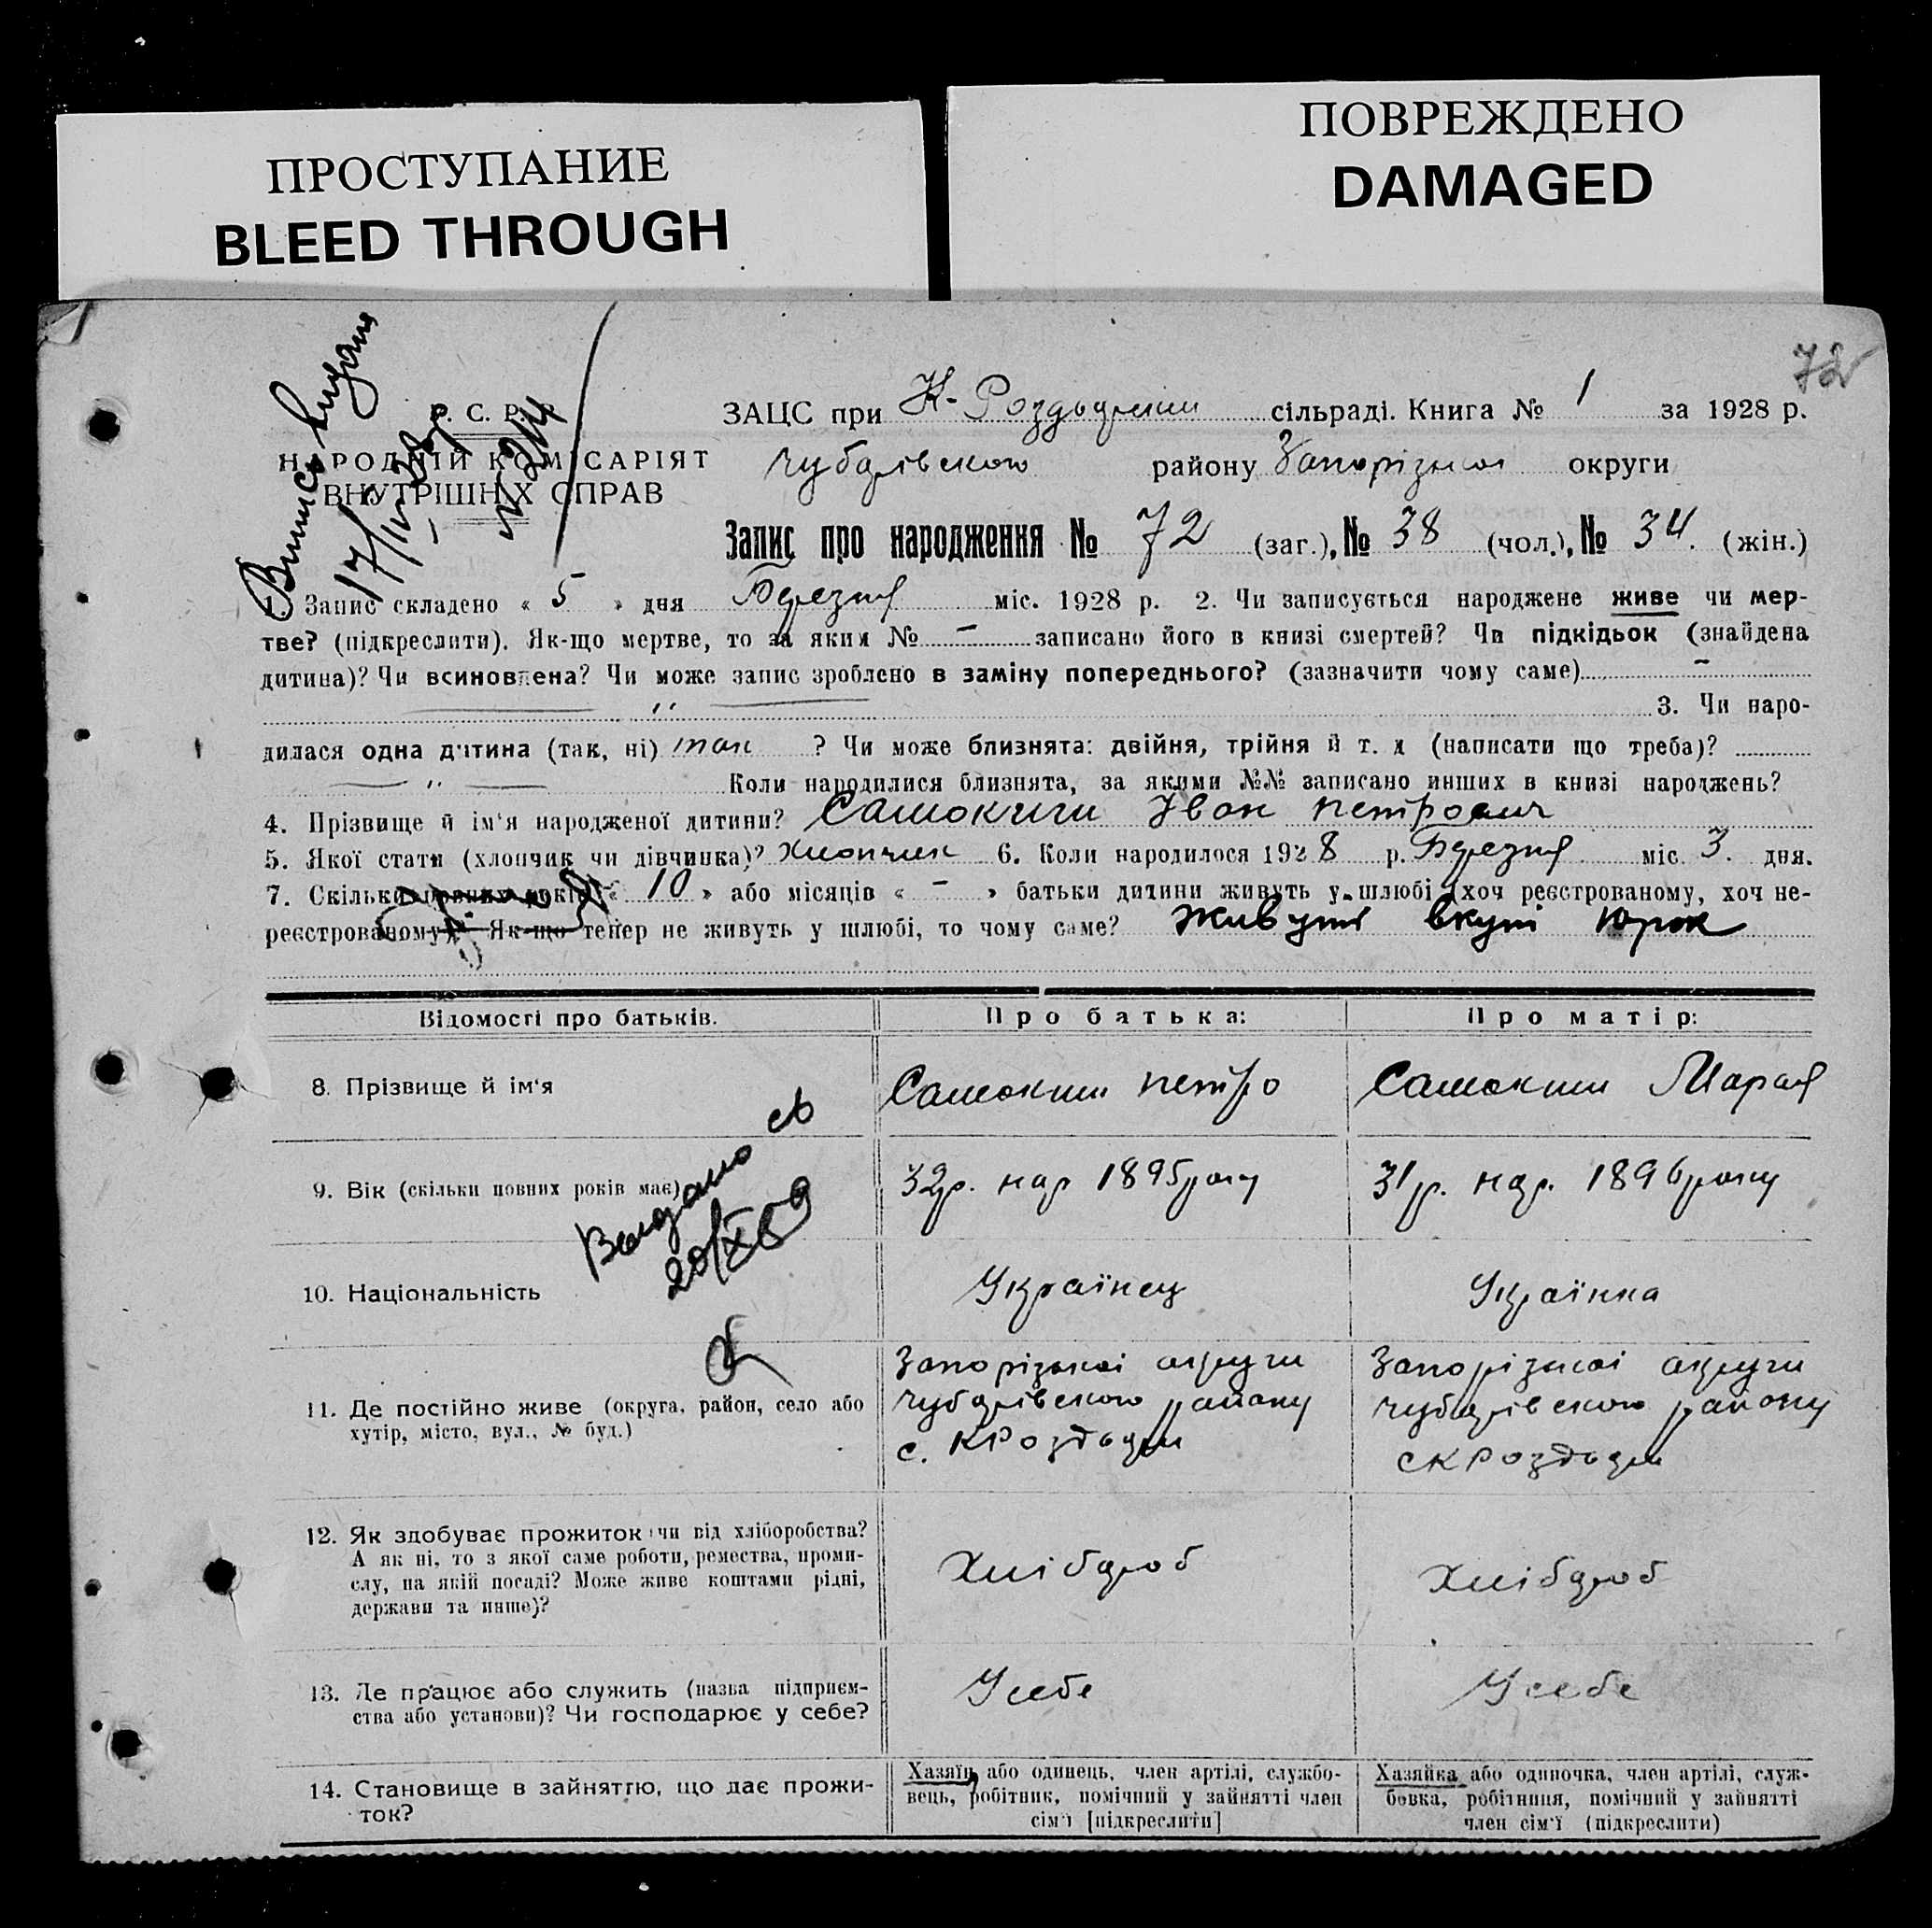 ПРОСТУПАНИЕ
BLEED THROUGH
ПОВРЕЖДЕНО
DAMAGED
72
Випись видана
17/IV 28 р
№ 314
. С. Р. Р.
НАРОДНІЙ КОМІСАРІЯТ
ВНУТРІШНІХ СПРАВ
ЗАЦС при К-Роздорский сільраді. Книга № 1 за 1928 р.
Чубарівського району Запорізької округи
Запис про народження № 72 (заг.), № 38 (чол.), № 34. (жін.)
1. Запис складено « 5 » дня Березня міс. 1928 р. 2. Чи записується народжене живе чи мер-
тве? (підкреслити). Як-що мертве, то за яким № – записано його в книзі смертей? Чи підкідьок (знайдена
дитина)? Чи всиновлена? Чи може запис зроблено в заміну попереднього? (зазначити чому саме) –
— " — 3. Чи наро-
дилася одна дитина (так, ні) так ? Чи може близнята: двійня, трійня й т. д (написати що треба)?
— " — Коли народилися близнята, за якими №№ записано инших в книзі народжень?
4. Прізвище й ім'я народженої дитини? Іван Петрович
5. Якої стати (хлопчик чи дівчинка)? Хлопчик 6. Коли народилося 1928 р. Березня міс. 3. дня.
7. Скільки повних років « 10 » або місяців « – » батьки дитини живуть у шлюбі (хоч реєстрованому, хоч не-
реєстрованому)? Як-що тепер не живуть у шлюбі, то чому саме? Живуть вкупі
Відомості про батьків.
Про батька:
Про матір:
8. Прізвище й ім'я
Петро
Мария
9. Вік (скільки повних років має)
32р. нар 1895року
31р. нар. 1896року
Выдано св
20/XI 59
10. Національність
Українец
Українка
11. Де постійно живе (округа, район, село або
хутір, місто, вул., № буд.)
Запорізької округи
Чубарівського району
с. К Роздори
Запорізької округи
Чубарівського району
с К Роздори
12. Як здобуває прожиток чи від хліборобства?
А як ні, то з якої саме роботи, ремества, проми-
слу, на якій посаді? Може живе коштами рідні,
держави та инше)?
Хлібороб
Хлібороб
13. Де працює або служить (назва підприєм-
ства або установи)? Чи господарює у себе?
У себе
У себе
14. Становище в зайняттю, що дає прожи-
ток?
Хазяїн або одинець, член артілі, службо-
вець, робітник, помічний у зайнятті член
сім'ї [підкреслити]
Хазяйка або одиночка, член артілі, служ-
бовка, робітниця, помічний у зайнятті
член сім'ї (підкреслити)